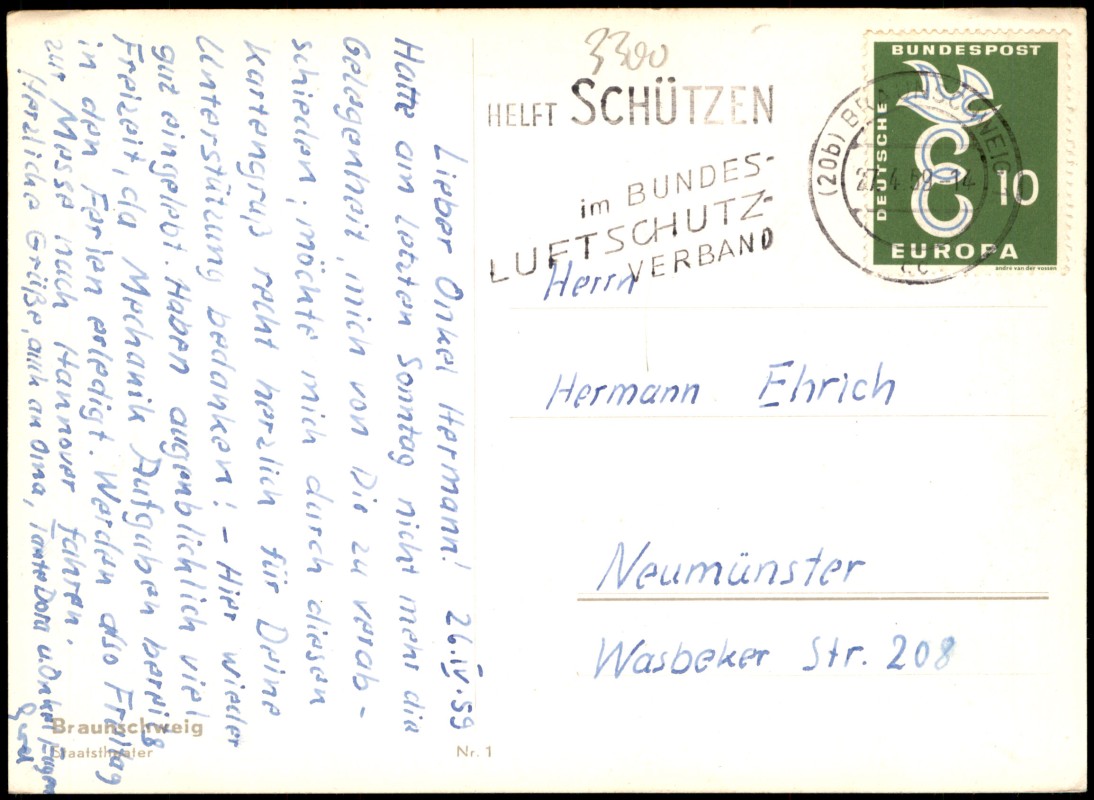 Lieber Onkel Hermann! 26.IV.59
Hatte am letzten Sonntag nicht mehr die
Gelegenheit, mich von Dir zu verab-
schieden, möchte mich durch diesen
Kartengruß recht herzlich für Deine
Unterstützung bedanken! – Hier wieder
gut eingelebt. Haben augenblicklich viel
Freizeit, da Mechanik Aufgaben bereits
in den Ferien erledigt. Werden also Freitag
zur Messe nach Hannover fahren.
Herzliche Grüße, auch an Oma, Tante Dora u. Onkel
Braunschweig
Staatstheater
Nr. 1
3300
HELFT SCHÜTZEN
im BUNDES-
LUFTSCHUTZ-
VERBAND
(20b) BRAUNSCHWEIG
27.4.59-14
cc
BUNDESPOST
DEUTSCHE
10
EUROPA
andré van der vossen
Herrn
Hermann Ehrich
Neumünster
Wasbeker Str. 208